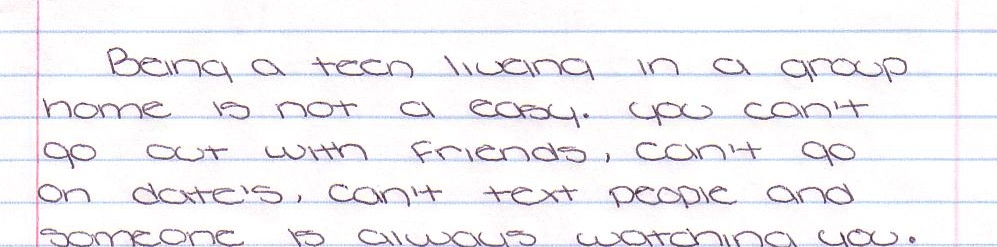 Being a teen liveing in a group
home is not a easy. you can't
go out with friends, can't go
on date's, can't text people and
someone is always watching you.